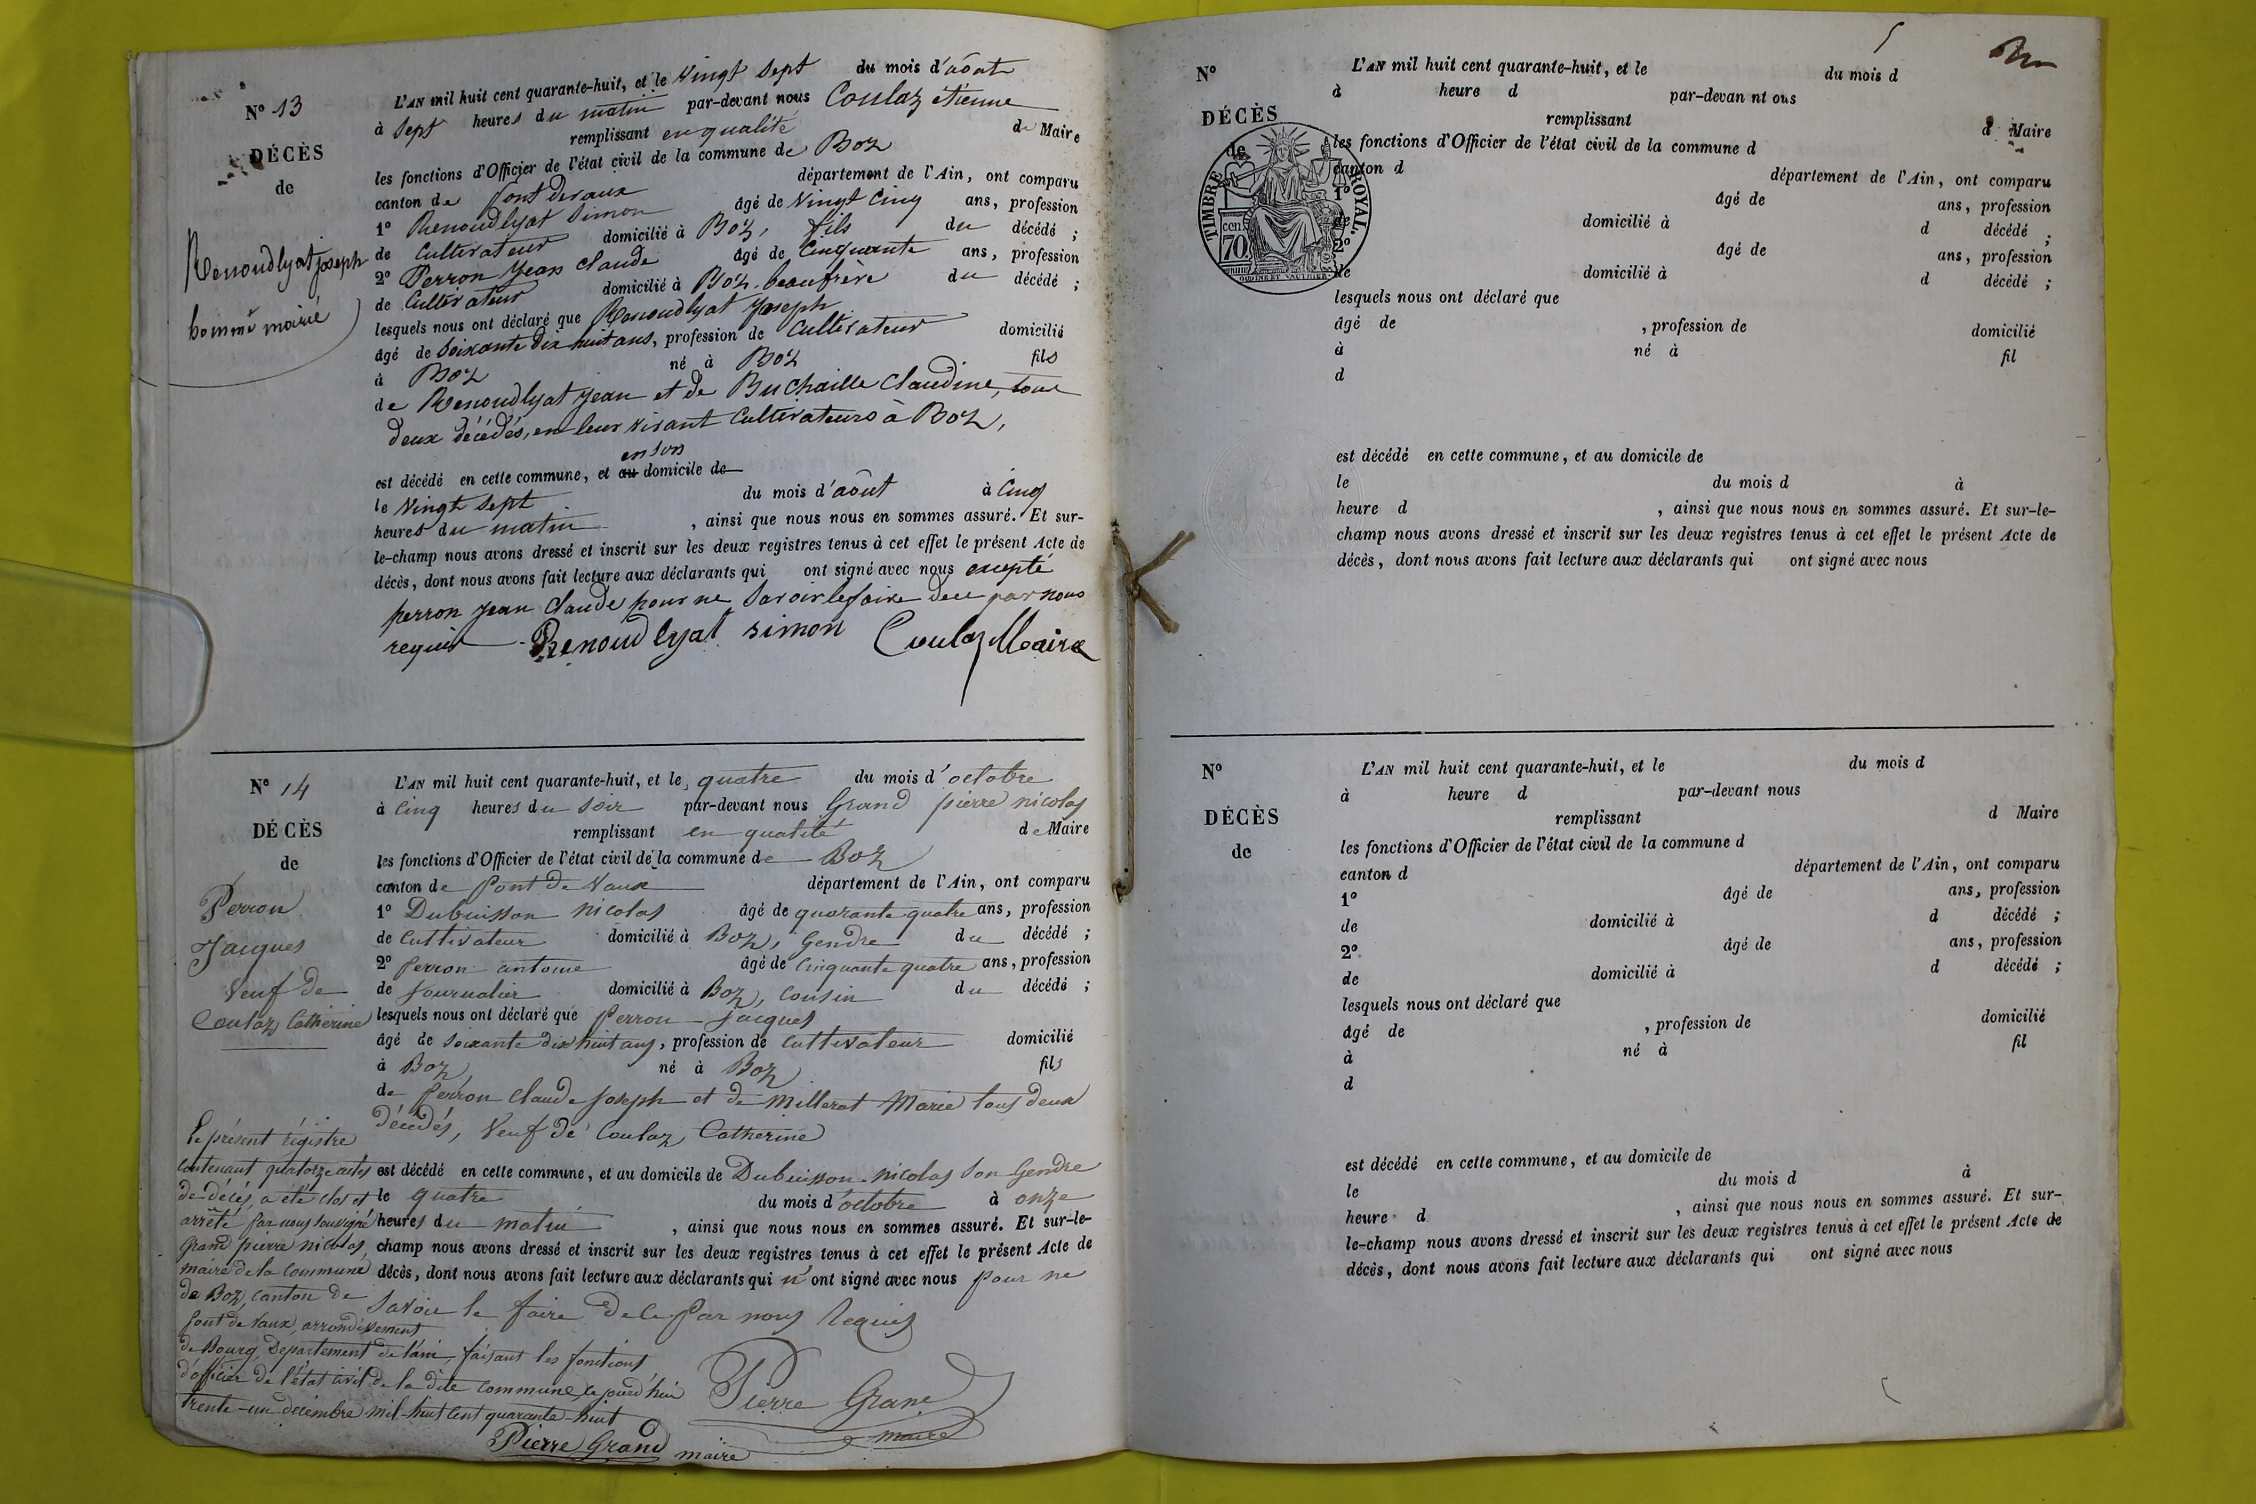 N° 13
DÉCÈS
de
Renoudlyat joseph
homme marié
L'AN mil huit cent quarante-huit, et le Vingt Sept du mois d'août
à Sept heures du matin par-devant nous Coulaz étienne
remplissant en qualité de Maire
les fonctions d'Officier de l'état civil de la commune de Boz
canton de pont devaux département de l'Ain, ont comparu
1° Renoudlyat Simon âgé de Vingt Cinq ans, profession
de Cultivateur domicilié à Boz, fils du décédé ;
2° Perron Jean Claude âgé de Cinquante ans, profession
de Cultivateur domicilié à Boz, beaufrère du décédé ;
lesquels nous ont déclaré que Renoudlyat Joseph
âgé de Soixante dix huit ans, profession de Cultivateur domicilié
à Boz né à Boz fils
de Renoudlyat Jean et de Buchaille Claudine, tous
deux décédés, en leur vivant Cultivateurs à Boz,
en son
est décédé en cette commune, et au domicile de
le Vingt Sept du mois d'août à Cinq
heures du matin , ainsi que nous nous en sommes assuré. Et sur-
le-champ nous avons dressé et inscrit sur les deux registres tenus à cet effet le présent Acte de
décès, dont nous avons fait lecture aux déclarants qui ont signé avec nous excepté
perron jean Claude pour ne Savoir le faire de ce par nous
requis Renoudlyat simon Coulaz Maire
N° 14
DÉCÈS
de
Perron
Jacques
Veuf de
Coulaz Catherine
L'AN mil huit cent quarante-huit, et le quatre du mois d'octobre
à Cinq heures du Soir par-devant nous Grand pierre nicolas
remplissant en qualité de Maire
les fonctions d'Officier de l'état civil de la commune de Boz
canton de Pont de Vaux département de l'Ain, ont comparu
1° Dubuisson nicolas âgé de quarante quatre ans, profession
de Cultivateur domicilié à Boz, Gendre du décédé ;
2° Perron antoine âgé de Cinquante quatre ans, profession
de Journalier domicilié à Boz, Cousin du décédé ;
lesquels nous ont déclaré que Perron Jacques
âgé de Soixante dix huit ans, profession de Cultivateur domicilié
à Boz né à Boz fils
de Perron Claude Joseph et de Millerat Marie tous deux
Décédés, Veuf de Coulaz Catherine
est décédé en cette commune, et au domicile de Dubuisson nicolas Son Gendre
le quatre du mois d'octobre à onze
heures du matin , ainsi que nous nous en sommes assuré. Et sur-le-
champ nous avons dressé et inscrit sur les deux registres tenus à cet effet le présent Acte de
décès, dont nous avons fait lecture aux déclarants qui n'ont signé avec nous pour ne
Savoir le faire de ce Par nous Requis
Pierre Grand
maire
Le présent régistre
Contenant quatorze actes
de décès, a été clos et
arrêté par nous soussigné
Grand pierre nicolas,
maire de la commune
de Boz, canton de
Pont de Vaux, arrondissement
de Bourg, Departement de l'ain, faisant les fonctions
d'officier de l'état civil de la dite commune cejourd'hui
trente-un décembre mil-huit cent quarante-huit
Pierre Grand maire
N°
DÉCÈS
de
TIMBRE ROYAL.
cen.
70
L'AN mil huit cent quarante-huit, et le du mois d
à heure d par-devan nt ous
remplissant d Maire
les fonctions d'Officier de l'état civil de la commune d
canton d département de l'Ain, ont comparu
1° âgé de ans, profession
de domicilié à d décédé ;
2° âgé de ans, profession
de domicilié à d décédé ;
lesquels nous ont déclaré que
âgé de , profession de domicilié
à né à fil
d
est décédé en cette commune, et au domicile de
le du mois d à
heure d , ainsi que nous nous en sommes assuré. Et sur-le-
champ nous avons dressé et inscrit sur les deux registres tenus à cet effet le présent Acte de
décès, dont nous avons fait lecture aux déclarants qui ont signé avec nous
N°
DÉCÈS
de
L'AN mil huit cent quarante-huit, et le du mois d
à heure d par-devant nous
remplissant d Maire
les fonctions d'Officier de l'état civil de la commune d
canton d département de l'Ain, ont comparu
1° âgé de ans, profession
de domicilié à d décédé ;
2° âgé de ans, profession
de domicilié à d décédé ;
lesquels nous ont déclaré que
âgé de , profession de domicilié
à né à fil
d
est décédé en cette commune, et au domicile de
le du mois d à
heure d , ainsi que nous nous en sommes assuré. Et sur-
le-champ nous avons dressé et inscrit sur les deux registres tenus à cet effet le présent Acte de
décès, dont nous avons fait lecture aux déclarants qui ont signé avec nous